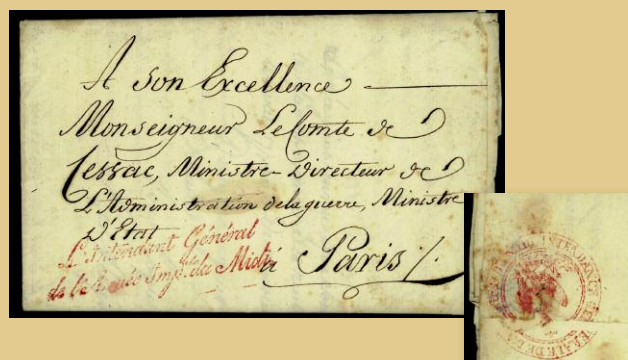 A Son Excellence
Monseigneur Le Comte de
Cessac, Ministre-Directeur de
L'Administration de la guerre, Ministre
D'Etat
L'Intendant Général
de l'Armée Imp.le du Midi
à Paris /.
INTENDANCE